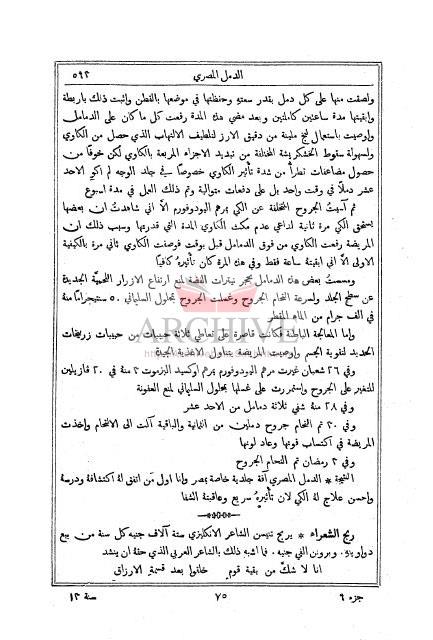 الدمل المصري ٥٩٣
ولصقت منها على كل دمل بقدر سعته وحفظتها في موضعها بالقطن واثبت ذلك باربطة
وابقيتها مدة ساعتين كاملتين وبعد مضي هذه المدة رفعت كل ما كان على الدمامل
واوصيت باستعمال لبخ ملينة من دقيق الارز لتلطيف الالتهاب الذي حصل من الكاوي
ولسهولة سقوط الخشكريشة المتخلفة من تبديد الاجزاء المربعة بالكاوي لكن خوفا من
حصول مضاعفات تطرأ من شدة تأثير الكاوي خصوصا في جلد الوجه لم اكو الاحد
عشر دملا في وقت واحد بل على دفعات متوالية وتم ذلك العمل في مدة اسبوع
ثم آسيت الجروح المتخلفة عن الكي بمرهم اليودوفورم الا اني شاهدت ان بعضها
يستحق الكي مرة ثانية لداعي عدم مكث الكاوي المدة التي قدرتها وسبب ذلك ان
المريضة رفعت الكاوي من فوق الدمامل قبل بوقت فوضعت الكاوي ثاني مرة بالكيفية
الاولى الا اني ابقيته ساعة فقط وفي هذه المرة كان تأثيره كافيا
ومسست بعض هذه الدمامل بحجر نيترات الفضة لمنع ارتفاع الازرار اللحمية الجديدة
عن سطح الجلد ولسرعة التحام الجروح وغسلت الجروح بمحلول السليماني ٥٠ سنتيجراما منه
في الف جرام من الماء المقطر
واما المعالجة الباطنة فكانت قاصرة على تعاطي ثلاثة حبيبات من حبيبات زرنيخات
الحديد لتقوية الجسم واوصيت المريضة بتناول الاغذية الجيدة
وفي ٢٦ شعبان غيرت مرهم اليودوفورم بمرهم اوكسيد البزموت ٢ منه في ٢٠ فازيلين
للتغيير على الجروح واستمررت على غسلها بمحلول السليماني لمنع العفونة
وفي ٢٨ منه شفي ثلاثة دمامل من الاحد عشر
وفي ٣٠ تم التحام جروح دملين من الثمانية والباقية آلت الى الالتحام واخذت
المريضة في اكتساب قوتها وعاد لونها
وفي ٣ رمضان تم التحام الجروح
النتيجة * الدمل المصري آفة جلدية خاصة بمصر وانا اول من اتفق له اكتشافه ودرسه
واحسن علاج له الكي لان تأثيره سريع وعاقبته الشفا
ربح الشعراء * يربح تنيسن الشاعر الانكليزي ستة آلاف جنيه كل سنة من بيع
دواوينه. وبرونن الفي جنيه. فما اشبه ذلك بالشاعر العربي الذي حقه ان ينشد
انا لا شك من بقية قوم خلقوا بعد قسمة الارزاق
جزء ٩ ٧٥ سنة ١٣
ARCHIVE